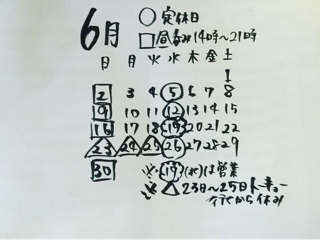 6月
○定休日
□昼呑み14時〜21時
日 月 火 水 木 金 土
1
2 3 4 5 6 7 8
9 10 11 12 13 14 15
16 17 18 19 20 21 22
23 24 25 26 27 28 29
30
※19(水)は営業
※△23日〜25日トーキョー
行くから休み